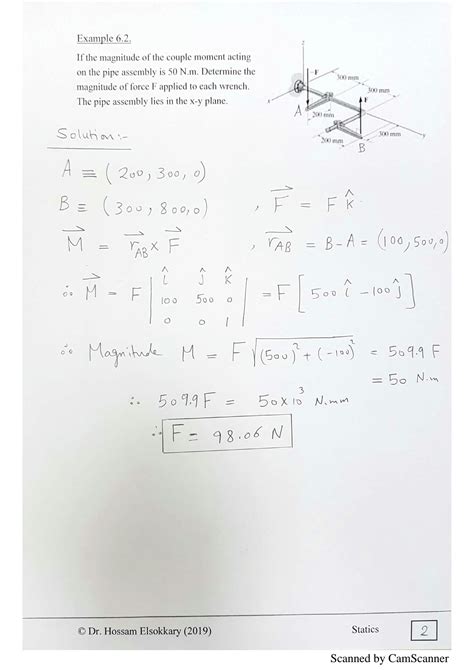 Example 6.2.
If the magnitude of the couple moment acting
on the pipe assembly is 50 N.m. Determine the
magnitude of force F applied to each wrench.
The pipe assembly lies in the x-y plane.
z
-F
300 mm
300 mm
F
A
200 mm
y
x
200 mm
300 mm
B
Solution:-
A ≡ (200, 300, 0)
B ≡ (300, 800, 0) , F⃗ = F K̂
M⃗ = r⃗AB × F⃗ , r⃗AB = B - A = (100, 500, 0)
∴ M⃗ = F | î ĵ K̂ | = F [500 î - 100 ĵ]
100 500 0
0 0 1
∴ Magnitude M = F √(500)² + (-100)² = 509.9 F
= 50 N.m
∴ 509.9 F = 50 × 10³ N.mm
∴ F = 98.06 N
© Dr. Hossam Elsokkary (2019) Statics 2
Scanned by CamScanner